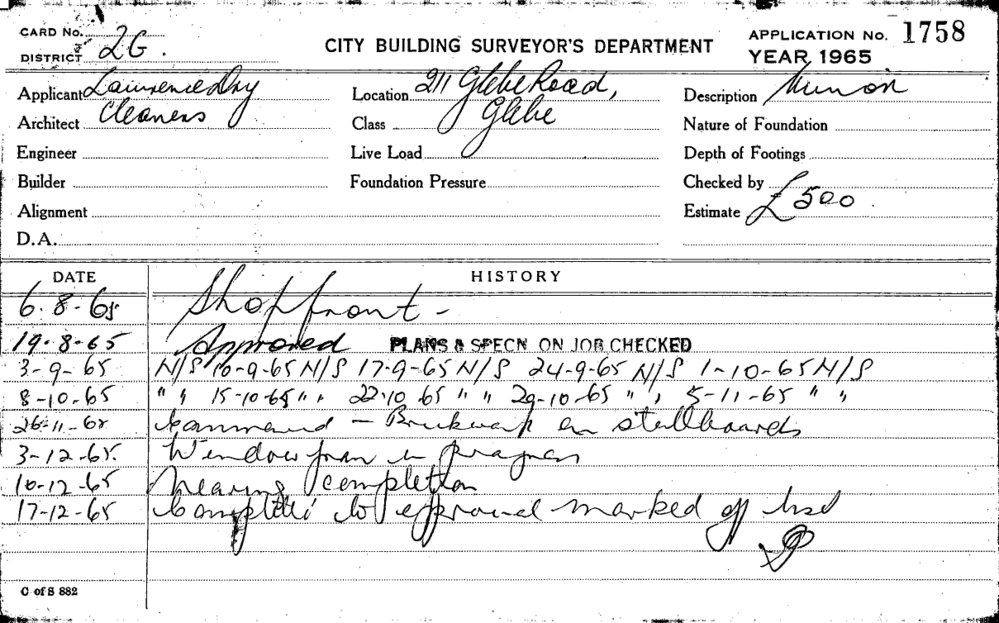 CARD No.
DISTRICT 2G.
CITY BUILDING SURVEYOR'S DEPARTMENT
APPLICATION No. 1758
YEAR 1965
Applicant Lawrence Dry
Location 211 Glebe Road,
Description
Architect Cleaners
Class Glebe
Nature of Foundation
Engineer
Live Load
Depth of Footings
Builder
Foundation Pressure
Checked by
Alignment
Estimate £500.
D.A.
DATE HISTORY
6.8.65 Shopfront -
19-8-65 Approved PLANS & SPECN ON JOB CHECKED
3-9-65 N/S 10-9-65 N/S 17-9-65 N/S 24-9-65 N/S 1-10-65 N/S
8-10-65 " " 15-10-65 " " 22-10-65 " " 29-10-65 " " 5-11-65 " "
26-11-65 – Brickwork on stallboards
3-12-65. Window in progress
10-12-65 Nearing completion
17-12-65 Completed to approval marked off
C of S 882